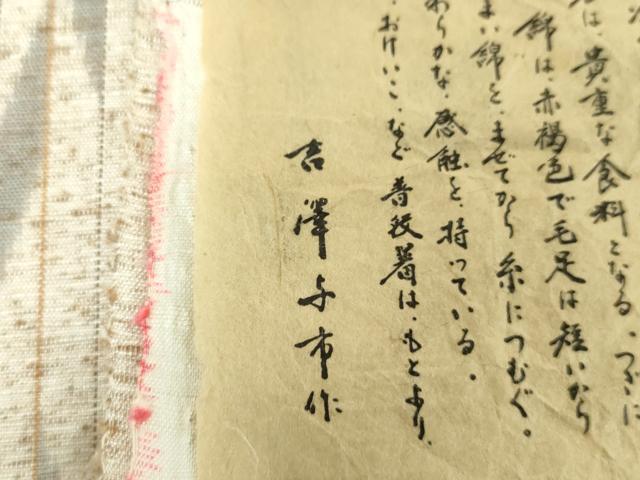 は、貴重な食料となる。つぎに
綿は、赤褐色で毛足は短いから
綿と、まぜてから糸につむぐ。
わらかな、感触を、持っている。
、おけいこ、など普段着は、もとより、
吉澤与市作